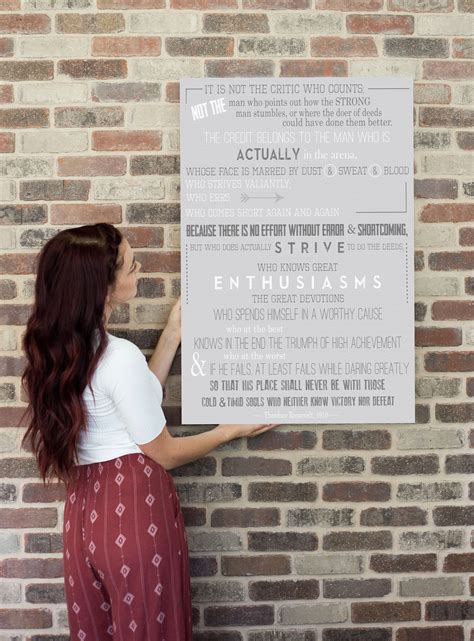 IT IS NOT THE CRITIC WHO COUNTS,
NOT THE man who points out how the STRONG
man stumbles, or where the doer of deeds
could have done them better.
THE CREDIT BELONGS TO THE MAN WHO IS
ACTUALLY in the arena,
WHOSE FACE IS MARRED BY DUST & SWEAT & BLOOD
WHO STRIVES VALIANTLY,
WHO ERRS
WHO COMES SHORT AGAIN AND AGAIN
BECAUSE THERE IS NO EFFORT WITHOUT ERROR & SHORTCOMING,
BUT WHO DOES ACTUALLY STRIVE TO DO THE DEEDS,
WHO KNOWS GREAT
ENTHUSIASMS
THE GREAT DEVOTIONS
WHO SPENDS HIMSELF IN A WORTHY CAUSE
who at the best
KNOWS IN THE END THE TRIUMPH OF HIGH ACHIEVEMENT
who at the worst
& IF HE FAILS, AT LEAST FAILS WHILE DARING GREATLY
SO THAT HIS PLACE SHALL NEVER BE WITH THOSE
COLD & TIMID SOULS WHO NEITHER KNOW VICTORY NOR DEFEAT
Theodore Roosevelt, 1910